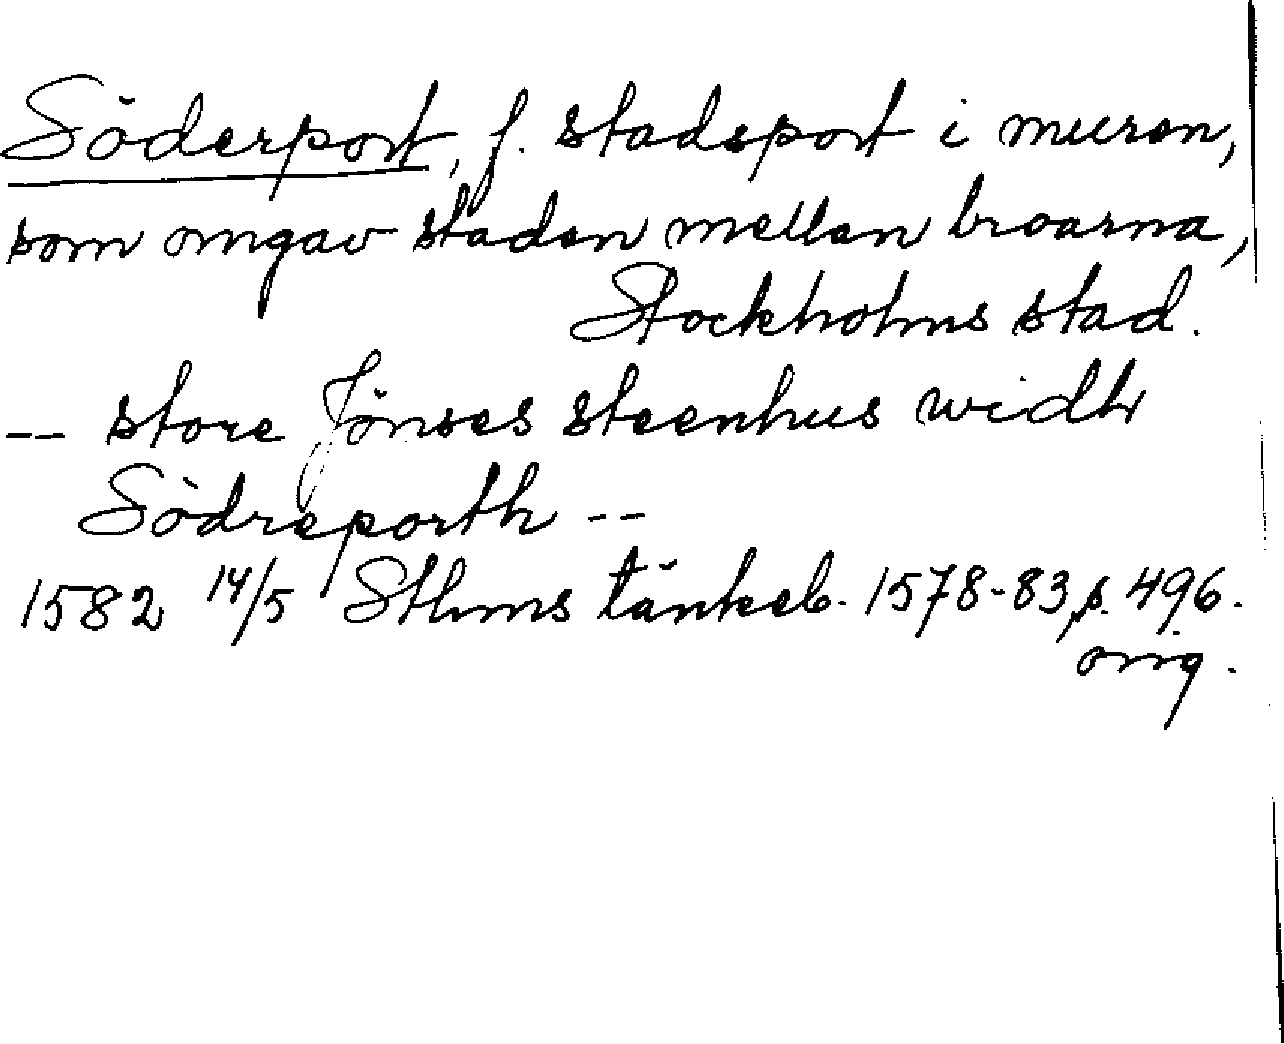 Söderport, f. stadsport i muren,
som omgav staden mellan broarna,
Stockholms stad.
-- store Jönses steenhus widh
Södreporth --
1582 14/5 Sthms tänkeb. 1578-83, s. 496.
orig.